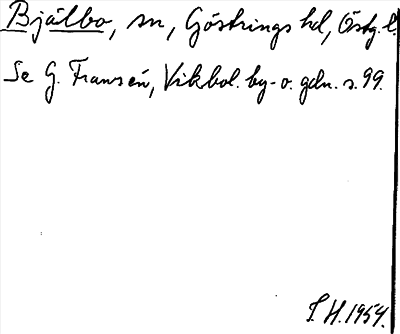 Bjälbo, sn, Göstrings hd, Östg. l.
Se G. Fransén, Vikbol. by- o. gdn. s. 99.
S. H. 1954.